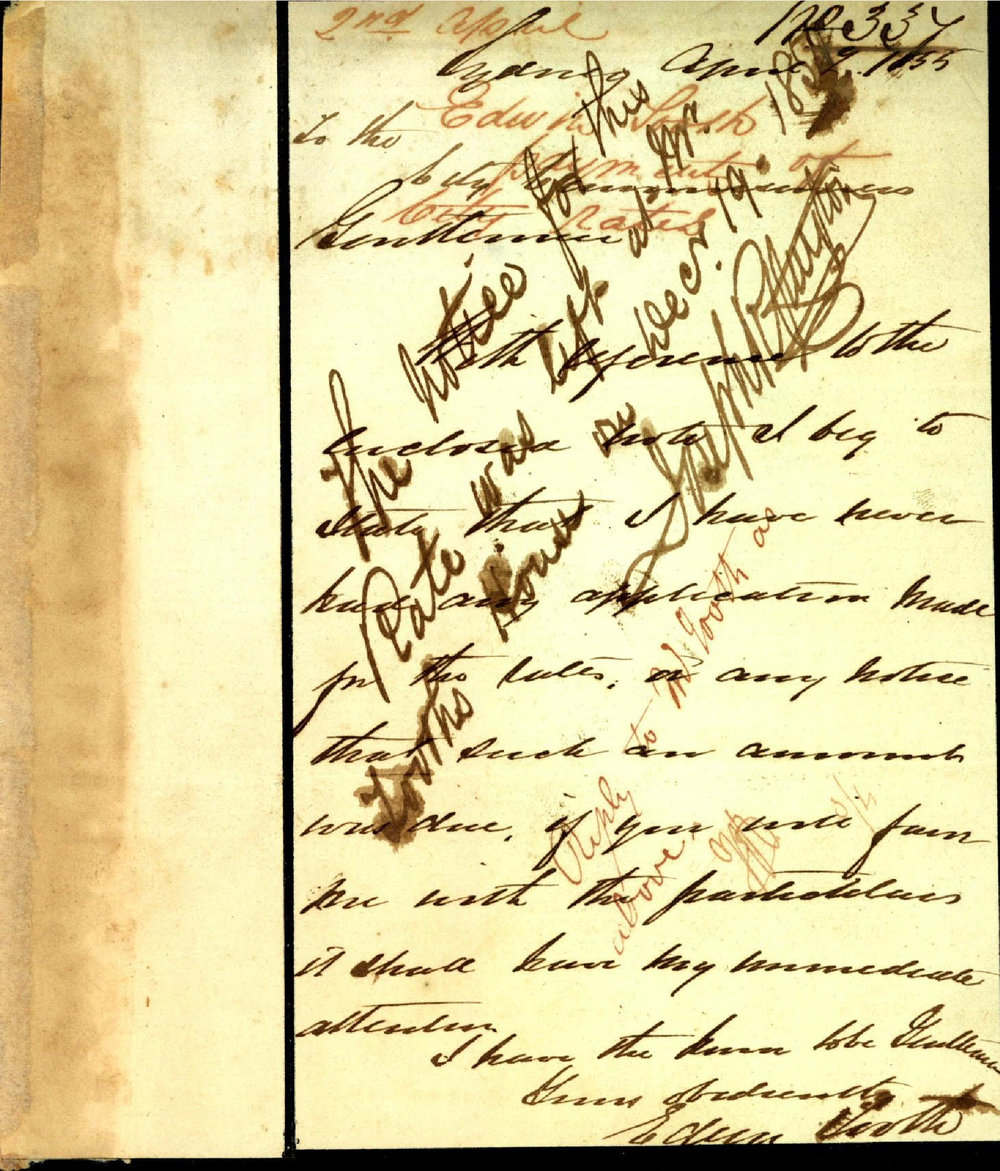 2nd April
No 337
Sydney April 2. 1855
Edwin Tooth
payment of
City Rates
To the
City Commissioners
Gentlemen
With reference to the
enclosed note I beg to
state that I have never
had any application made
for the rates, or any notice
that such an amount
was due, if you will favor
me with the particulars
it shall have my immediate
attention
I have the honor to be Gentlemen
Yours obediently
Edwin Tooth
The notice for this
Rate was left at Mr.
Tooths House on Decr. 19. 1854
Joseph P.
Reply to Mr Tooth as
above.